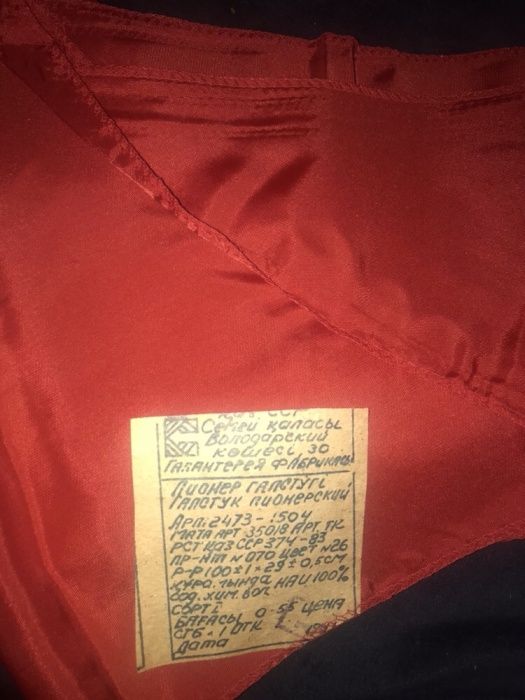 Семей қаласы
Володарский
көшесі 30
Галантерея фабрикасы
Пионер галстугі
Галстук пионерский
Арт. 2473-1504
Мата арт 35018 Арт. тк
РСТ Каз ССР 374-83
пр-нт N 070 цвет N26
Р-р 100±1×29±0,5см
құра. ғында НАЦ 100%
Сод. хим. вол
Сорт I
Бағасы 0-55 цена
Сгб. 1 ОТК 2
Дата